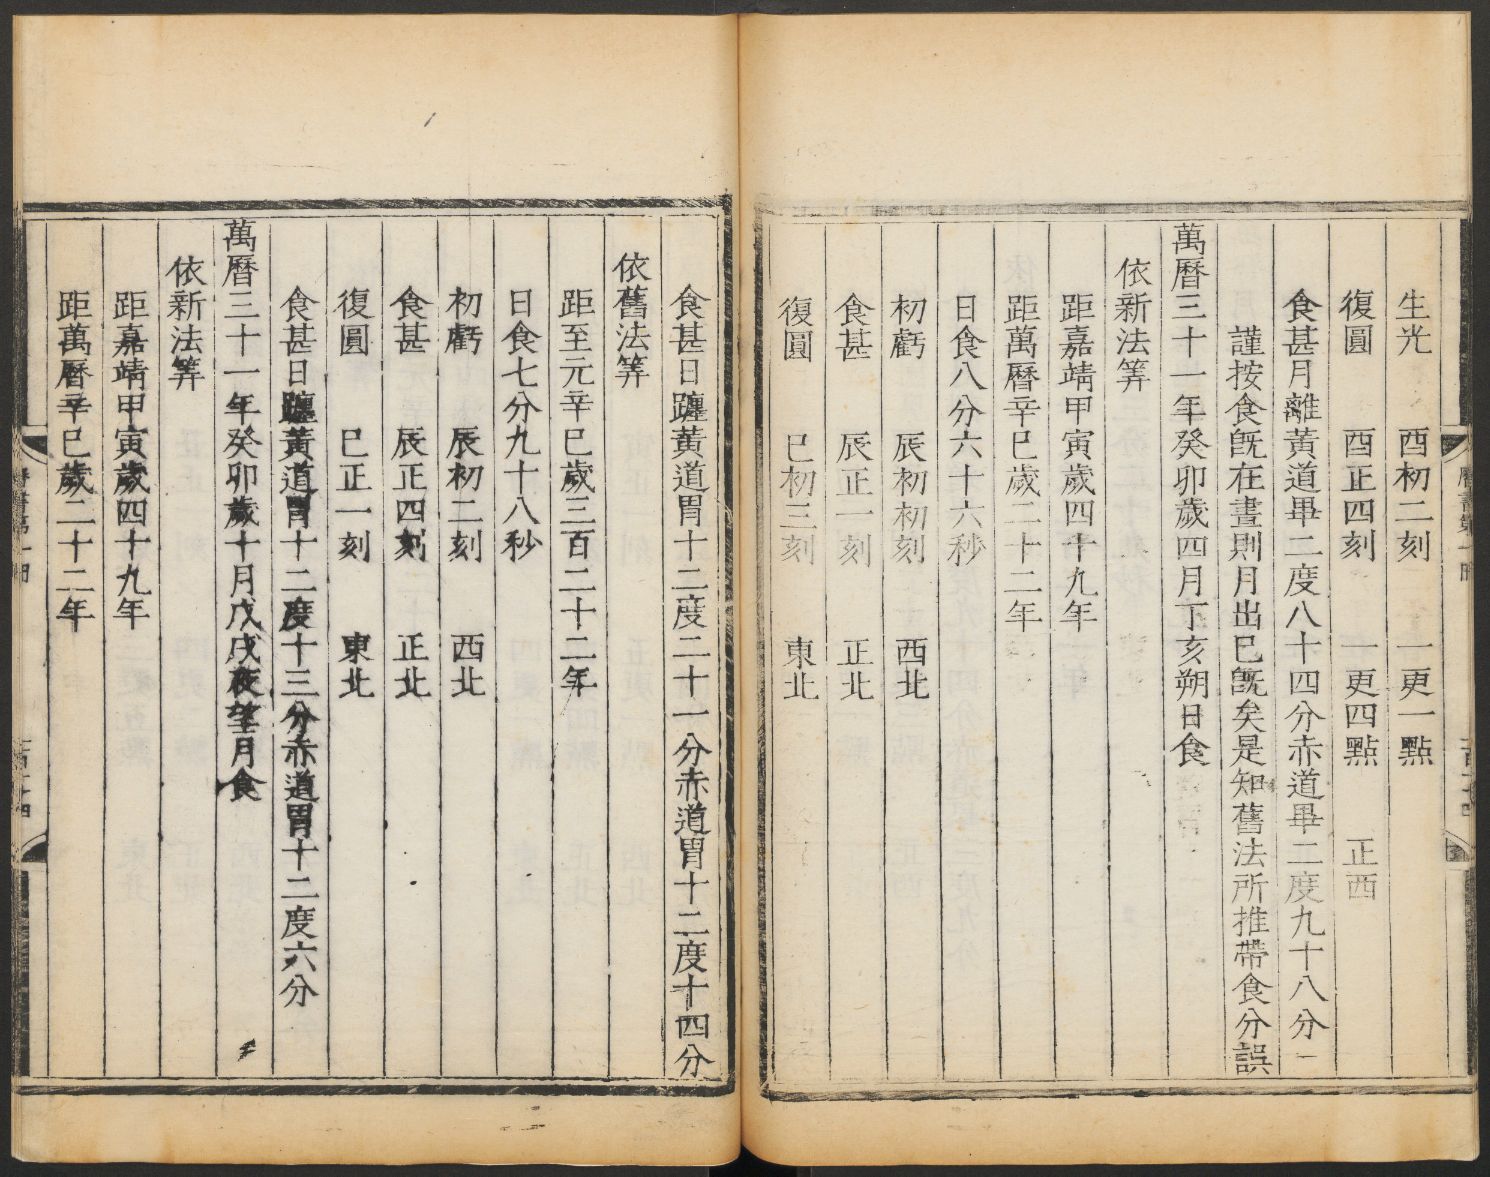 生光　酉初二刻　一更一點
復圓　酉正四刻　一更四點　正西
食甚月離黃道畢二度八十四分赤道畢二度九十八分
謹按食旣在晝則月出已旣矣是知舊法所推帶食分誤
萬曆三十一年癸卯歲四月丁亥朔日食
依新法筭
距嘉靖甲寅歲四十九年
距萬曆辛巳歲二十二年
日食八分六十六秒
初虧　辰初初刻　西北
食甚　辰正一刻　正北
復圓　巳初三刻　東北
食甚日躔黃道胃十二度二十一分赤道胃十二度十四分
依舊法筭
距至元辛巳歲三百二十二年
日食七分九十八秒
初虧　辰初二刻　西北
食甚　辰正四刻　正北
復圓　巳正一刻　東北
食甚日躔黃道胃十二度十三分赤道胃十二度六分
萬曆三十一年癸卯歲十月戊戌夜望月食
依新法筭
距嘉靖甲寅歲四十九年
距萬曆辛巳歲二十二年